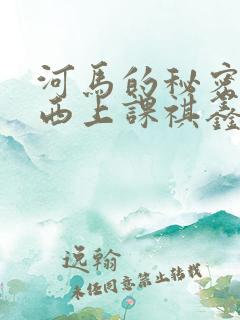 河馬的秘密
西上課祺鑫
逸翰
未经同意禁止转载